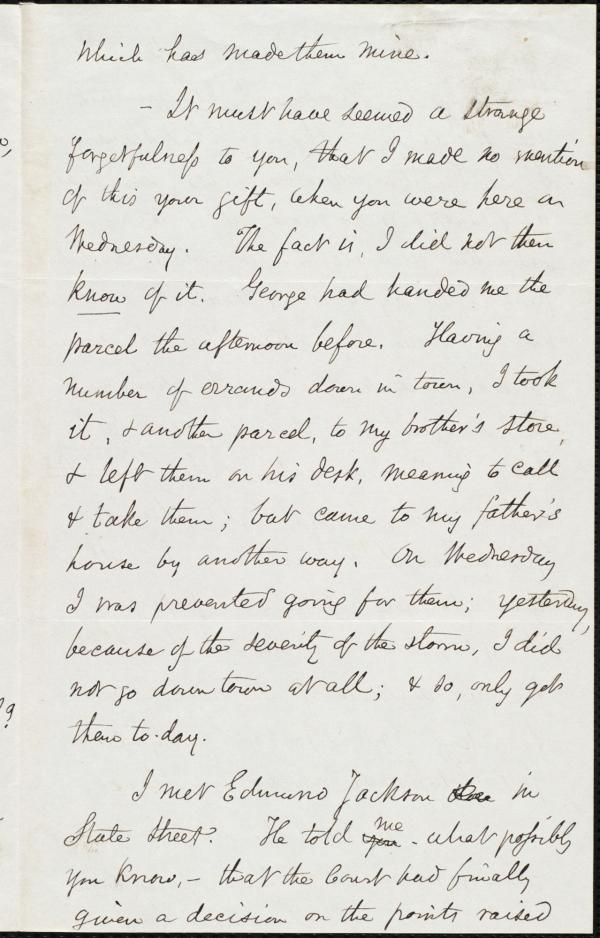 which has made them mine.
- It must have seemed a strange
forgetfulness to you, that I made no mention
of this your gift, when you were here on
Wednesday. The fact is, I did not then
know of it. George had handed me the
parcel the afternoon before. Having a
number of errands down in town, I took
it, & another parcel, to my brother's store,
& left them on his desk, meaning to call
& take them; but came to my father's
house by another way. On Wednesday
I was prevented going for them; yesterday,
because of the severity of the storm, I did
not go down town at all; & so, only got
them to-day.
I met Edmund Jackson in
State Street. He told you me - what possibly
you know, - that the Court had finally
given a decision on the points raised